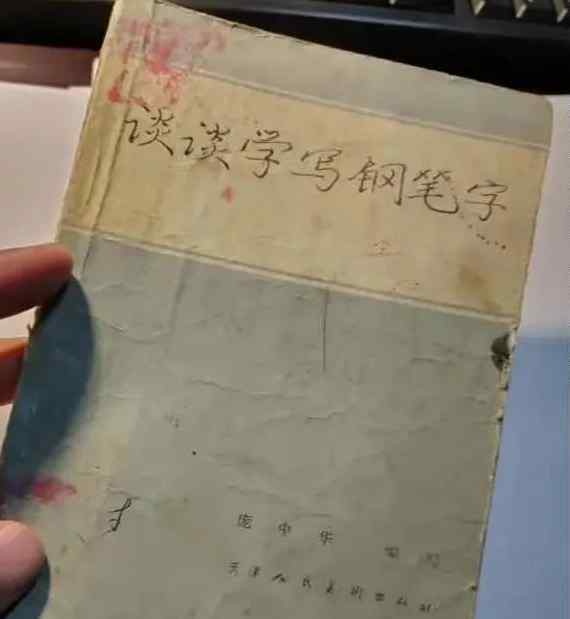 谈谈学写钢笔字
庞中华 编写
天津人民美术出版社